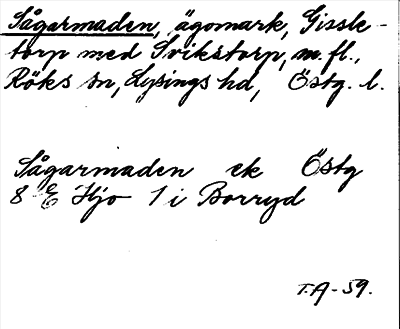 Sågarmaden, ägomark, Gissle-
torp med Svikstorp, m.fl.,
Röks sn, Lysings hd, Östg. l.
Sågarmaden ek Östg
8 E Hjo 1 i Borryd
T.A-59.